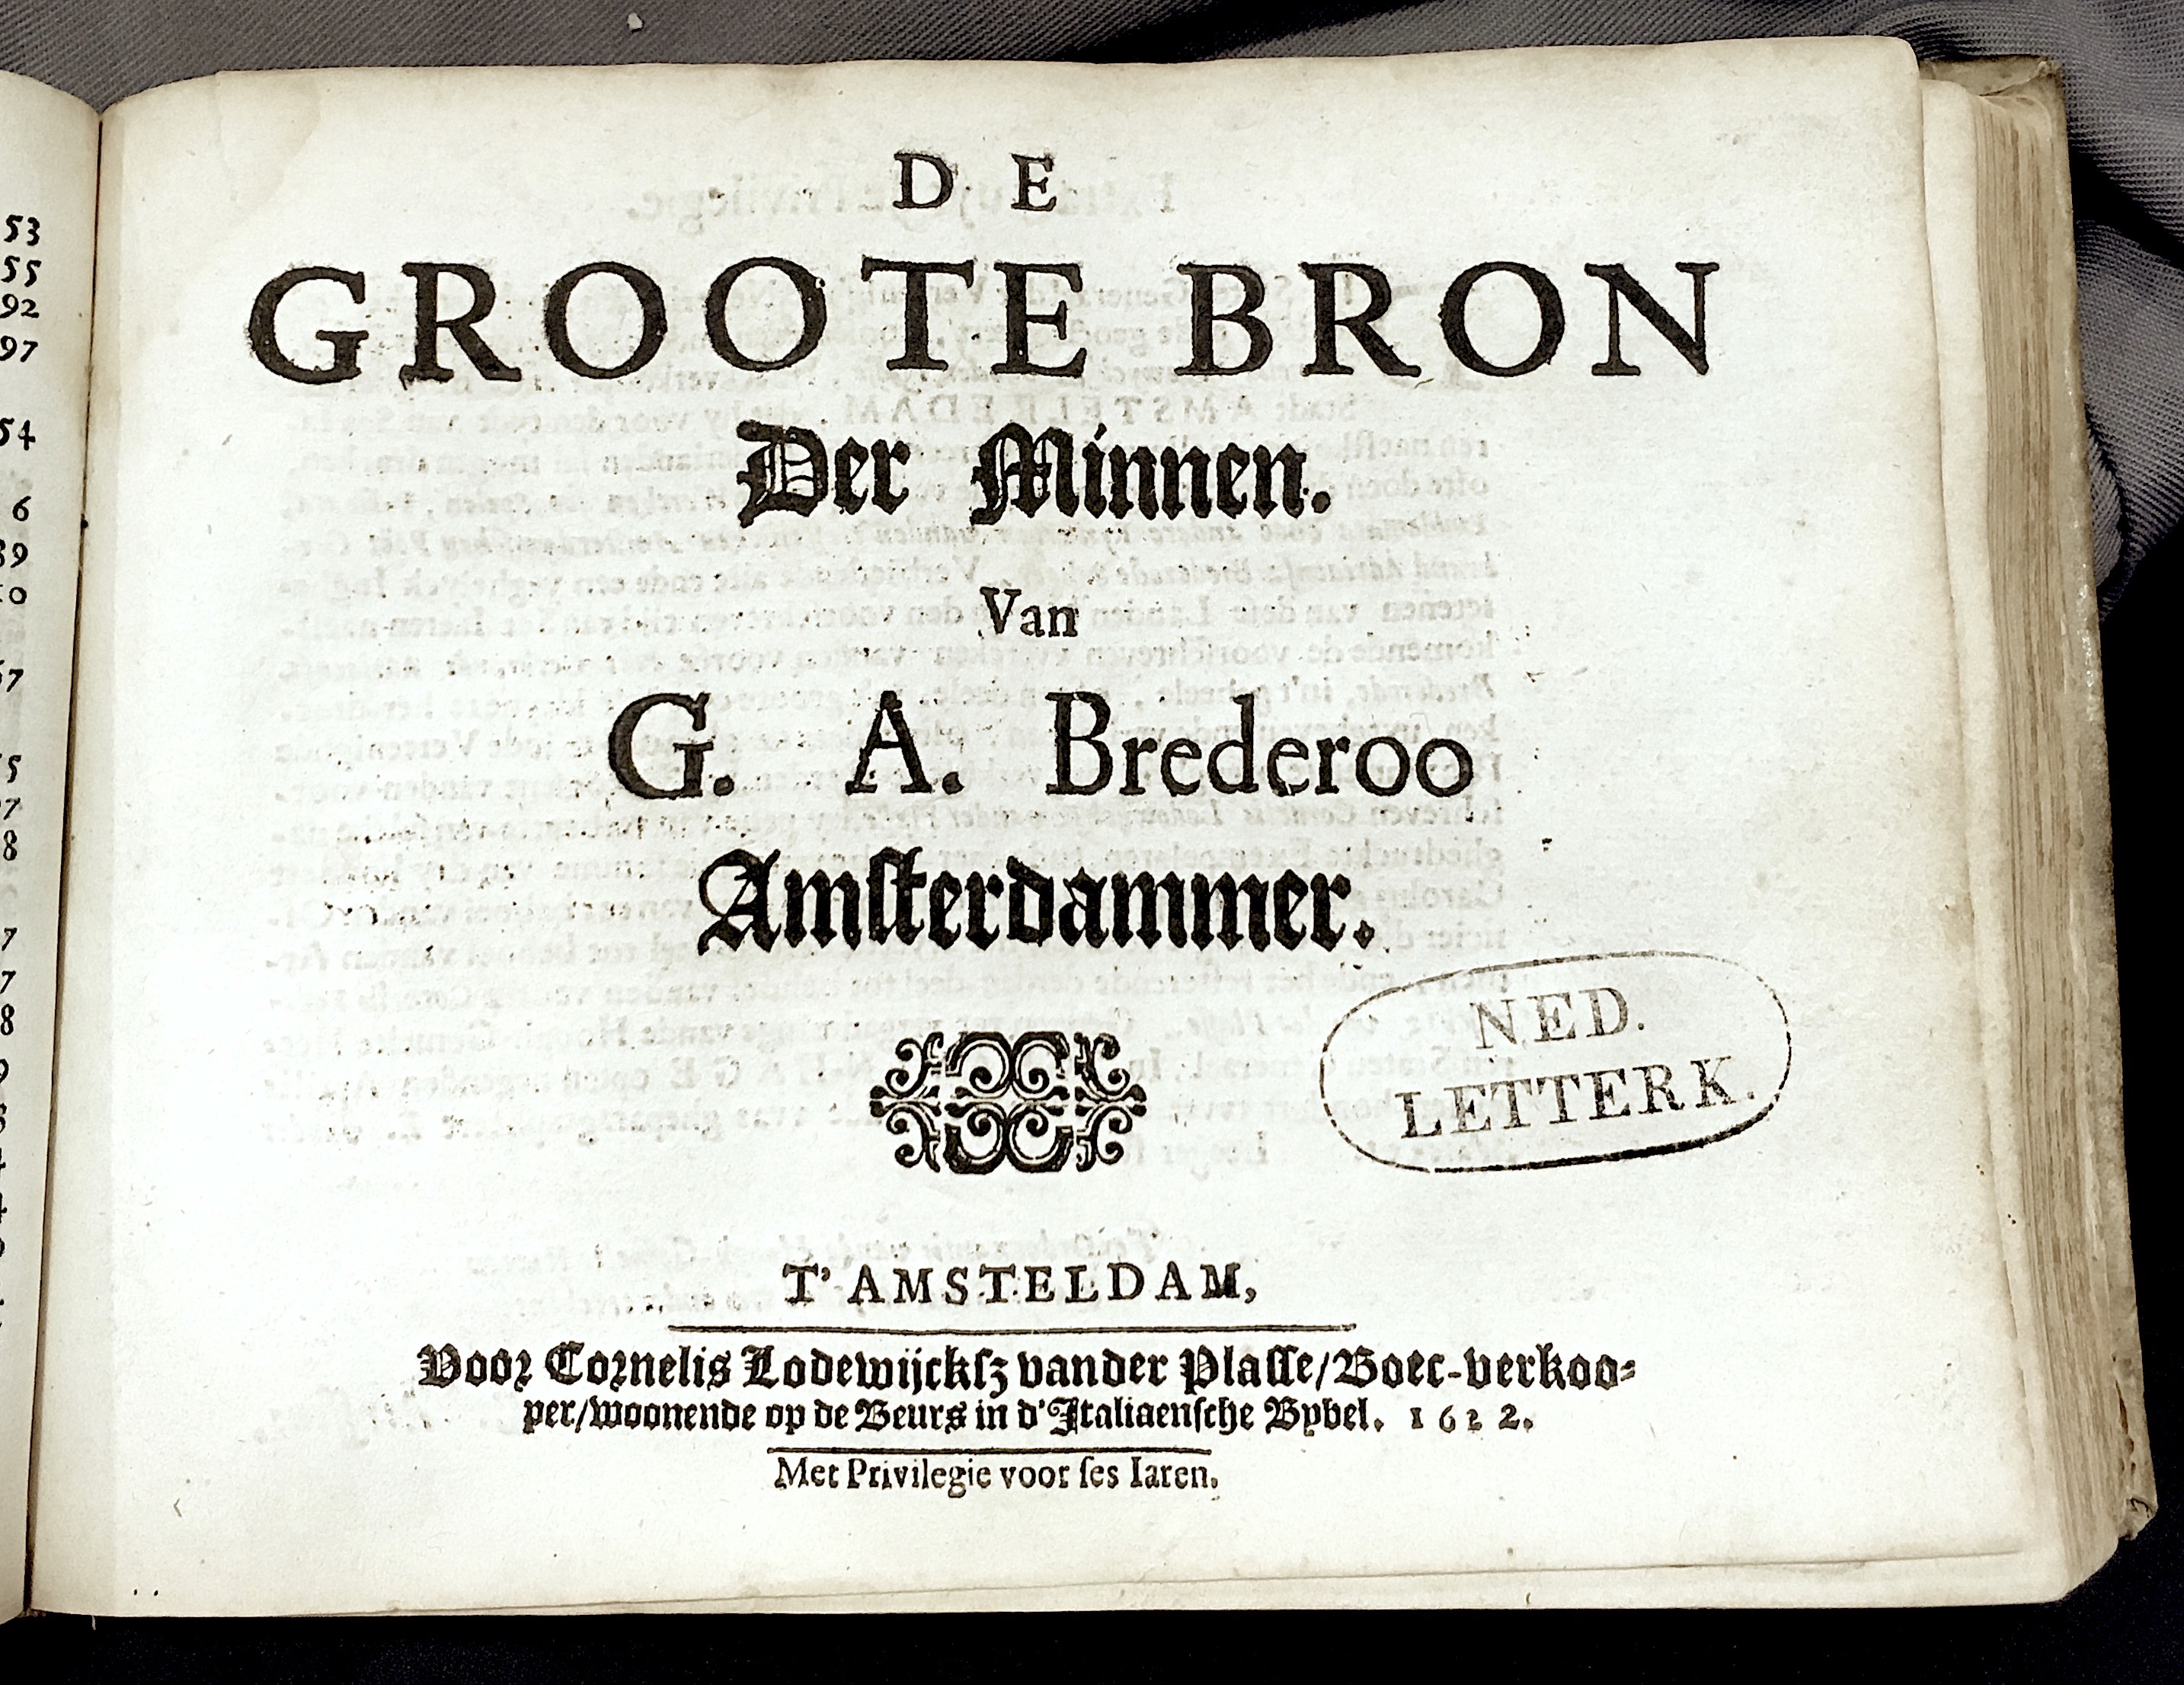 53
55
92
97
54
6
39
10
67
5
7
8
7
7
8
DE
GROOTE BRON
Der Minnen.
Van
G. A. Brederoo
Amſterdammer.
NED.
LETTERK.
T'AMSTELDAM,
Voor Cornelis Lodewijckſz vander Plaſſe/Boec-verkoo-
per/woonende op de Beurs in d'Italiaenſche Bybel. 1622.
Met Privilegie voor ſes Iaren.